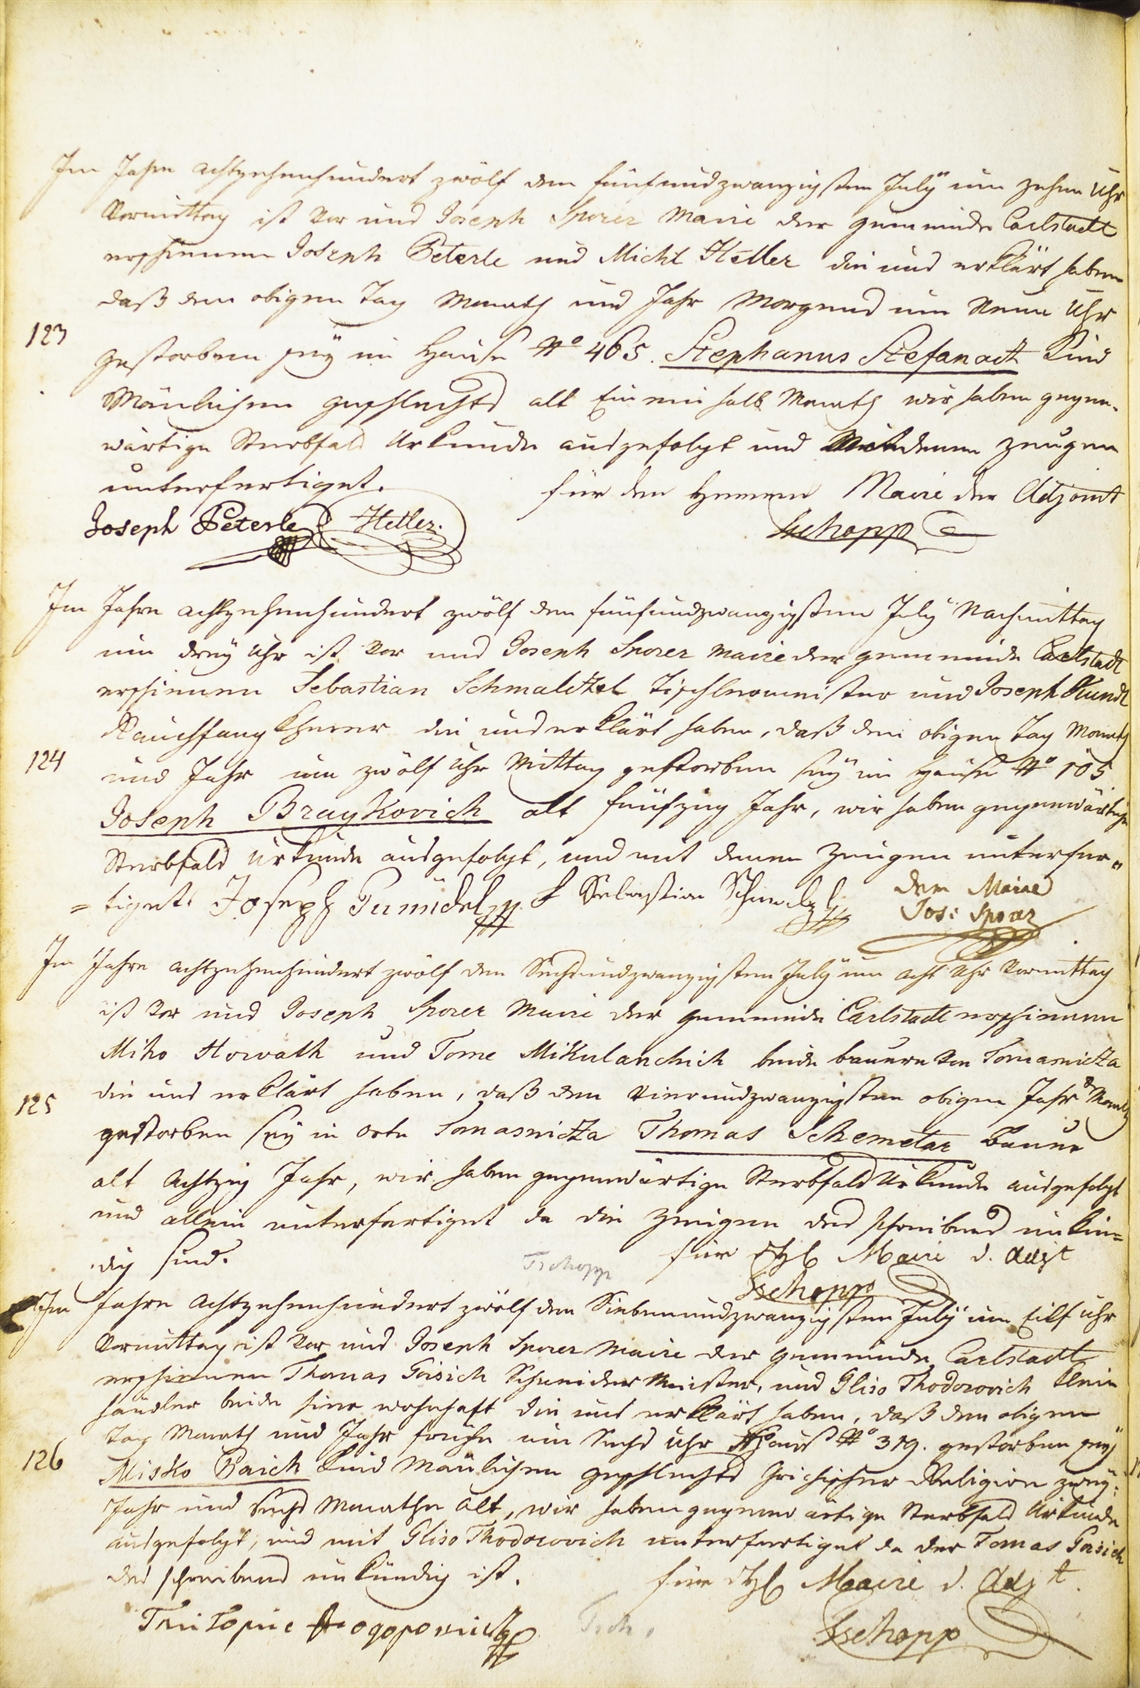 Im Jahre achtzehenhundert zwölf den fünfundzwanzigsten July um zehen Uhr
Vormittag ist vor uns Joseph Sporer Maire der gemeinde Carlstadt
erschienen Joseph Peterle und Michl Heller die uns erklärt haben
daß den obigen Tag Monath und Jahr Morgens um Neun Uhr
123
gestorben sey im Hause No 465. Stephanus Stefanach Kind
Mänlichen geschlechts alt Ein ein halb Monath wir haben gegen-
wärtige Sterbfald Urkunde ausgefolgt und Mit denen zeugen
unterfertiget. für den Herren Maire der Adjoint
Joseph Peterle Heller. Tschopp
Im Jahre achtzehenhundert zwölf den fünfundzwanzigsten July Nachmittag
um drey Uhr ist vor uns Joseph Sporer Maire der gemeinde Carlstadt
erschienen Sebastian Schmaltzel Tischlermeister und Joseph Kundl
Rauchfang Kherer die uns erklärt haben, daß den obigen Tag Monath
124
und Jahr um zwölf Uhr Mittag gestorben sey im Hause No 105
Joseph Braykovich alt fünfzig Jahr, wir haben gegenwärtige
Sterbfald Urkunde ausgefolgt, und mit denen Zeugen unterfer=
=tiget. Joseph Sebastian der Maire
Jos: Sporer
Im Jahre achtzehenhundert zwölf den Sechsundzwanzigsten July um acht Uhr Vormittag
ist vor uns Joseph Sporer Maire der gemeinde Carlstadt erschienen
Miho Horvath und Tome Mikulanchich beide bauern von Tomasnicza
die uns erklärt haben, daß den vierundzwanzigsten obigen Jahr & Monath
125
gestorben sey in Orte Tomasnicza Thomas Schemetar Bauer
alt Achtzig Jahr, wir haben gegenwärtige Sterbfald Urkunde ausgefolgt
und allein unterfertiget da die zeugen des schreibens unkün=
dig sind. Tschopp für Maire d. Adjt
Tschopp
Im Jahre Achtzehenhundert zwölf den Siebenundzwanzigsten July um Eilf Uhr
Vormittag ist vor uns Joseph Sporer Maire der gemeinde Carlstadt
erschienen Thomas Gaisich Schneider Meister, und Gliso Thodorovich Klein
händler beide hier wohnhaft die uns erklärt haben, daß den obigen
Tag Monath und Jahr fruhe um Sechs Uhr Hauß No 319. gestorben sey
126
Misko Baich Kind Mänlichen geschlechts grichischer Religion zwey
Jahr und Sechs Monathe Alt, wir haben gegenwärtige Sterbfald Urkunde
ausgefolgt, und mit Gliso Thodorovich unterfertiget da der Tomas Gaisich
des schreibens unkündig ist. für Maire d. Adjt.
Tsch. Tschopp